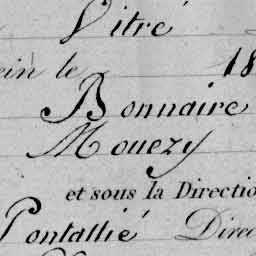 Vitré
ein le 18
Bonnaire
Mouezy
et sous la Directio
Pontallié Direc